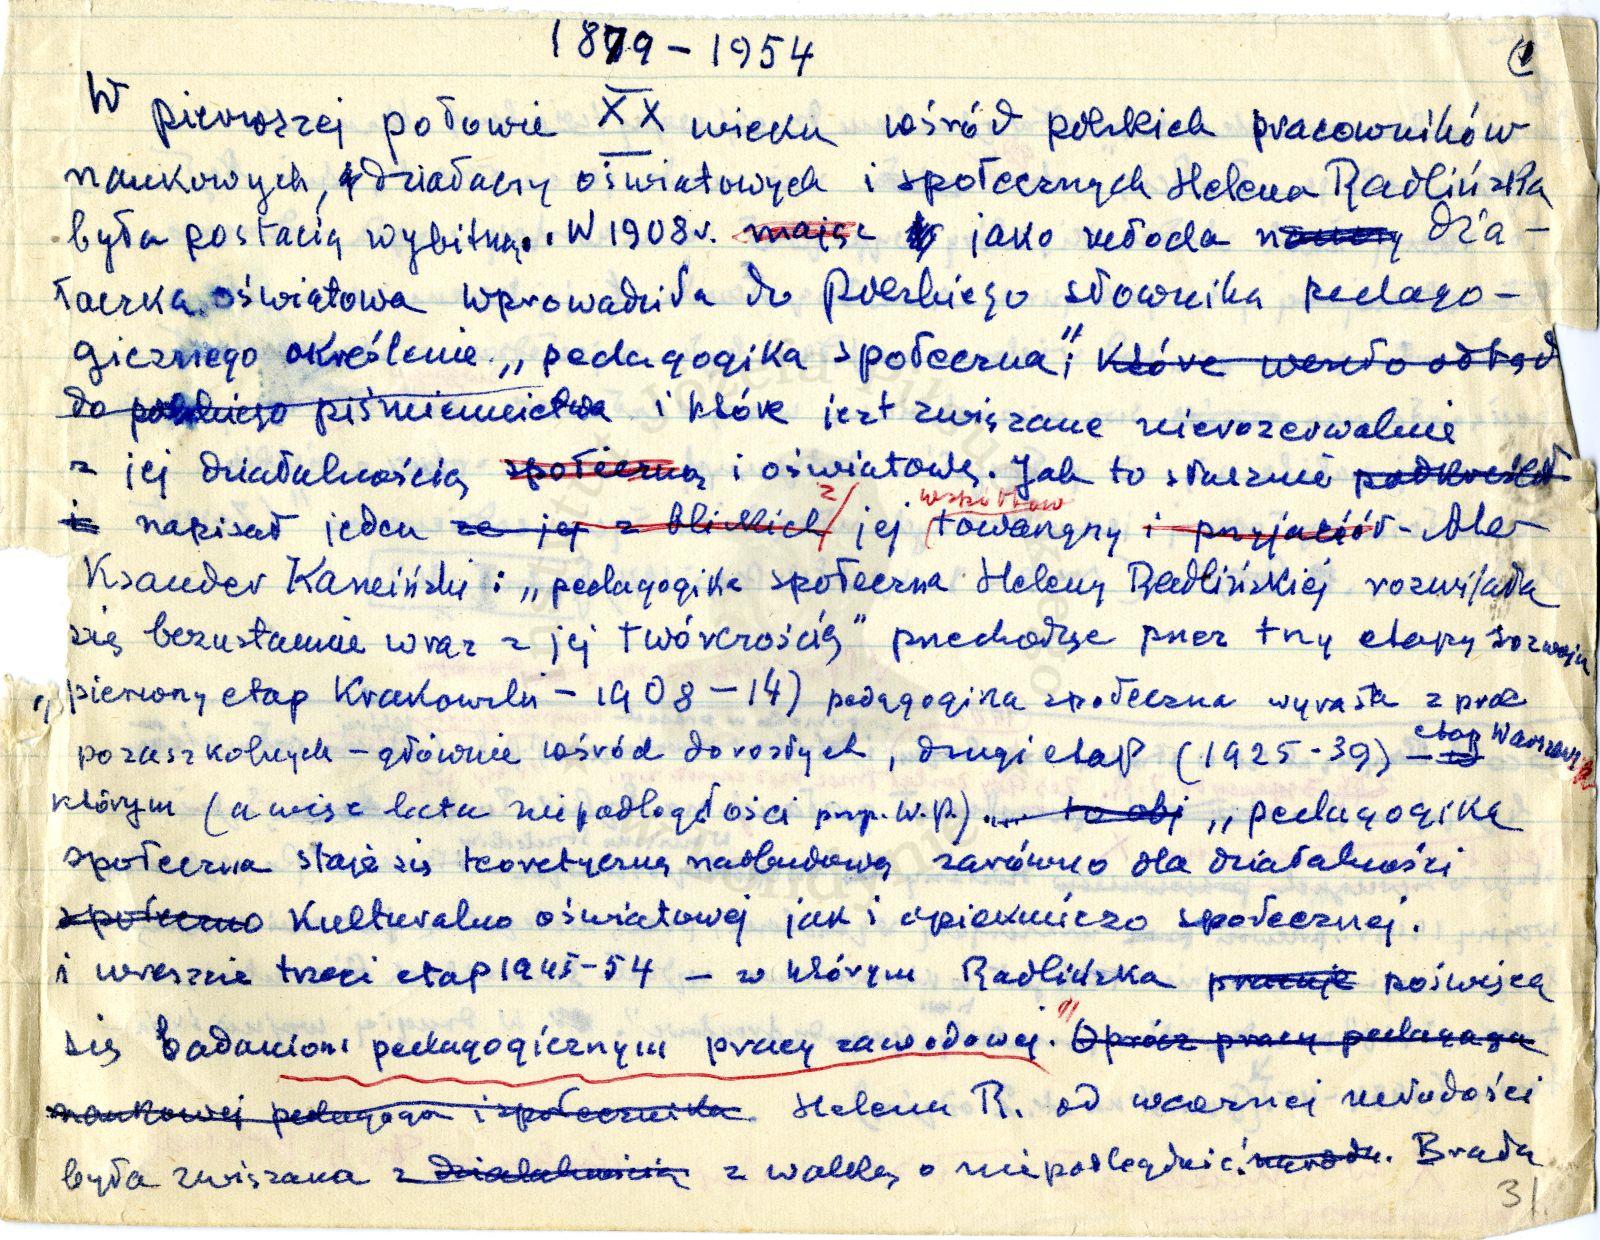 1879 – 1954
W pierwszej połowie XX wieku wśród polskich pracowników
naukowych, działaczy oświatowych i społecznych Helena Radlińska
była postacią wybitną. W 1908 r. mając jako młoda dzia-
łaczka oświatowa wprowadziła do polskiego słownika pedago-
gicznego określenie „pedagogika społeczna", które weszło odtąd
do polskiego piśmiennictwa i które jest związane nierozerwalnie
z jej działalnością społeczną i oświatową. Jak to słusznie podkreślał
napisał jeden ze jej z bliskich z jej współtow towarzyszy i przyjaciół – Ale-
ksander Kamiński: „pedagogika społeczna Heleny Radlińskiej rozwijała
się bezustannie wraz z jej twórczością" przechodząc przez trzy etapy rozwoju
„pierwszy etap Krakowski – 1908 – 14) pedagogika społeczna wyrasta z prac
pozaszkolnych – głównie wśród dorosłych, drugi etap (1925-39) – etap Warszawski w
którym (a więc lata niepodległości przyp. W.P.) ... to obj „pedagogika
społeczna staje się teoretyczną nadbudową zarówno dla działalności
społeczno kulturalno oświatowej jak i opiekuńczo społecznej.
i wreszcie trzeci etap 1945-54 – w którym Radlińska pracuje poświęca
się badaniom pedagogicznym pracy zawodowej." Oprócz pracy pedagoga
naukowej pedagoga i społecznika Helena R. od wczesnej młodości
była związana z działalnością z walką o niepodległość narodu. Brała
31